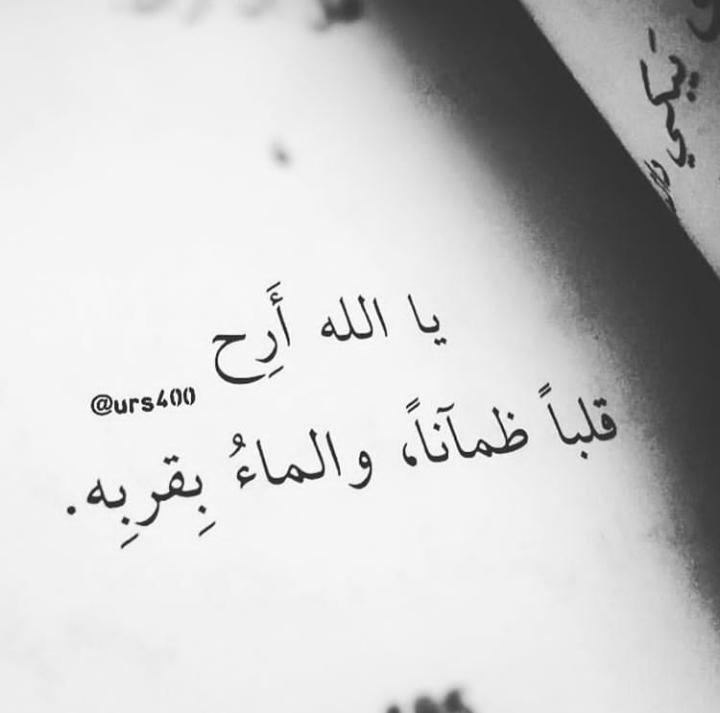 يَبكي
يا الله أَرِح
@urs400
قلباً ظمآناً، والماءُ بِقربِه.